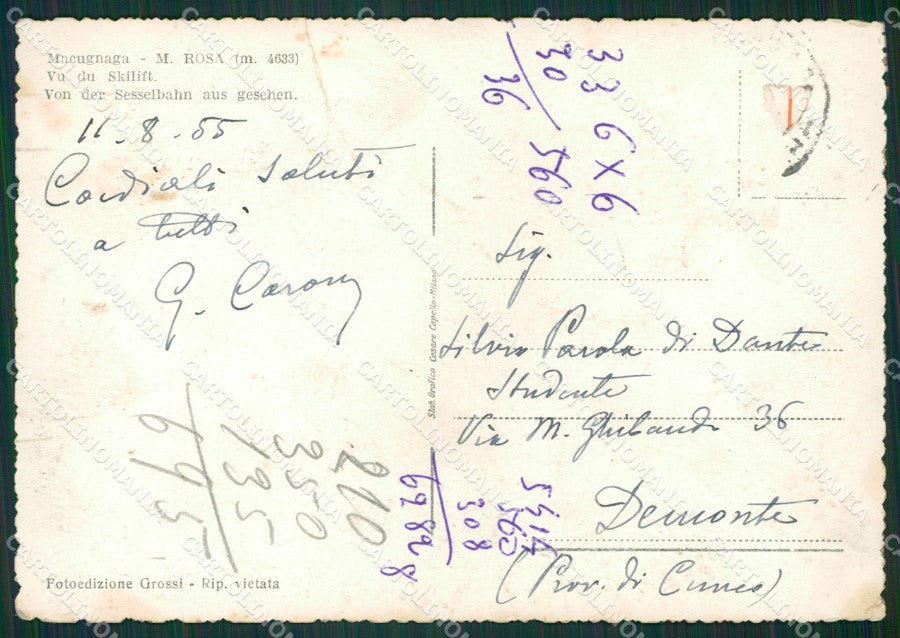 Macugnaga - M. ROSA (m. 4633)
Vu du Skilift.
Von der Sesselbahn aus gesehen.
11-8-55
Cordiali saluti
a tutti
G.
Fotoedizione Grossi - Rip. vietata
Stab Grafico Cesare Capello-Milano
Sig.
Silvio Parola di Dante
Studente
Via M. Ghibaudo 36
Demonte
(Prov. di Cuneo)
33 6 x 6
30
36
560
210
350
135
695
5414
560
308
CARTOLINOMANIA